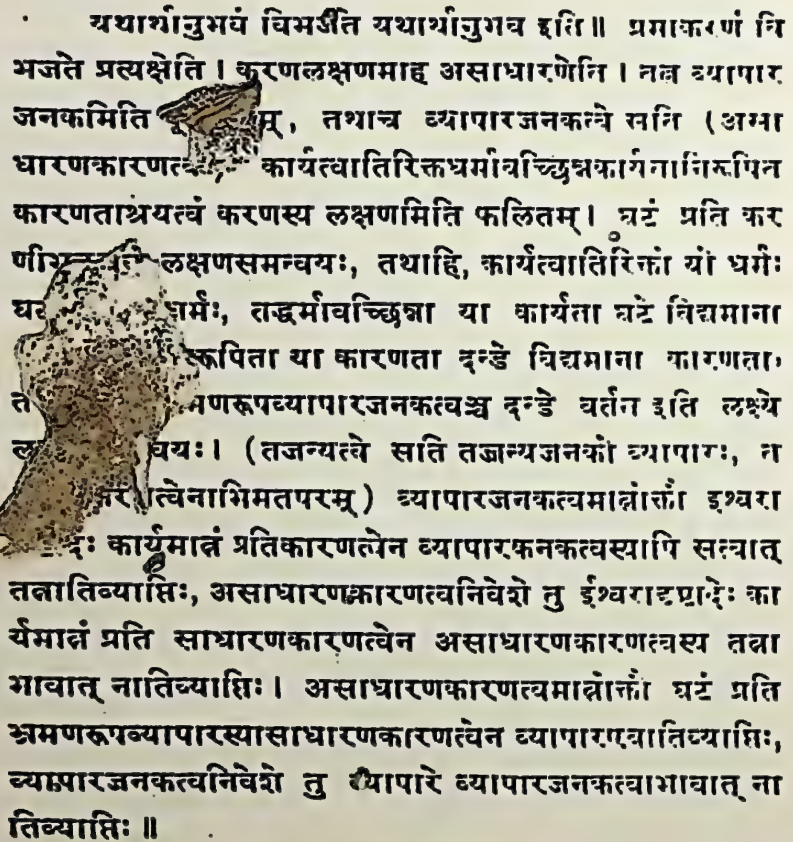 यथार्थानुभवं विभजते यथार्थानुभव इति ॥ प्रमाकरणं वि
भजते प्रत्यक्षेति । करणलक्षणमाह असाधारणेति । तत्र व्यापार
जनकमिति तथाच व्यापारजनकत्वे सति (असा
धारणकारणत्व कार्यत्वातिरिक्तधर्मावच्छिन्नकार्यतानिरूपित
कारणताश्रयत्वं करणस्य लक्षणमिति फलितम् । घटं प्रति कर
लक्षणसमन्वयः, तथाहि, कार्यत्वातिरिक्तो यो धर्मः
तद्धर्मावच्छिन्ना या कार्यता घटे विद्यमाना
या कारणता दन्डे विद्यमाना कारणता,
मणरूपव्यापारजनकत्वञ्च दन्डे वर्तत इति लक्ष्ये
वयः । (तज्जन्यत्वे सति तज्जन्यजनको व्यापारः, त
त्वेनाभिमतपरम्) व्यापारजनकत्वमात्रोक्तौ ईश्वरा
देः कार्यमात्रं प्रतिकारणत्वेन व्यापारकनकत्वस्यापि सत्वात्
तत्रातिव्याप्तिः, असाधारणकारणत्वनिवेशे तु ईश्वरादृष्टादेः का
र्यमात्रं प्रति साधारणकारणत्वेन असाधारणकारणत्वस्य तत्रा
भावात् नातिव्याप्तिः । असाधारणकारणत्वमात्रोक्तौ घटं प्रति
भ्रमणरूपव्यापारस्यासाधारणकारणत्वेन व्यापारएवातिव्याप्तिः,
व्यापारजनकत्वनिवेशे तु व्यापारे व्यापारजनकत्वाभावात् ना
तिव्याप्तिः ॥